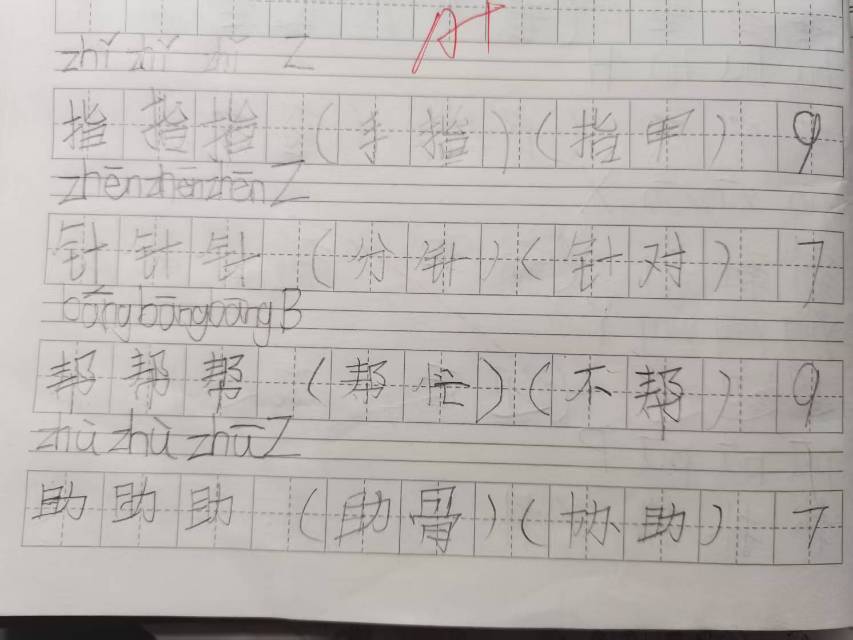 A+
zhǐ zhǐ zhǐ Z
指 指 指 (手 指) (指 甲) 9
zhēn zhēn zhēn Z
针 针 针 (分 针) (针 对) 7
bāng bāng bāng B
帮 帮 帮 (帮 忙) (不 帮) 9
zhù zhù zhū Z
助 助 助 (助 骨) (协 助) 7